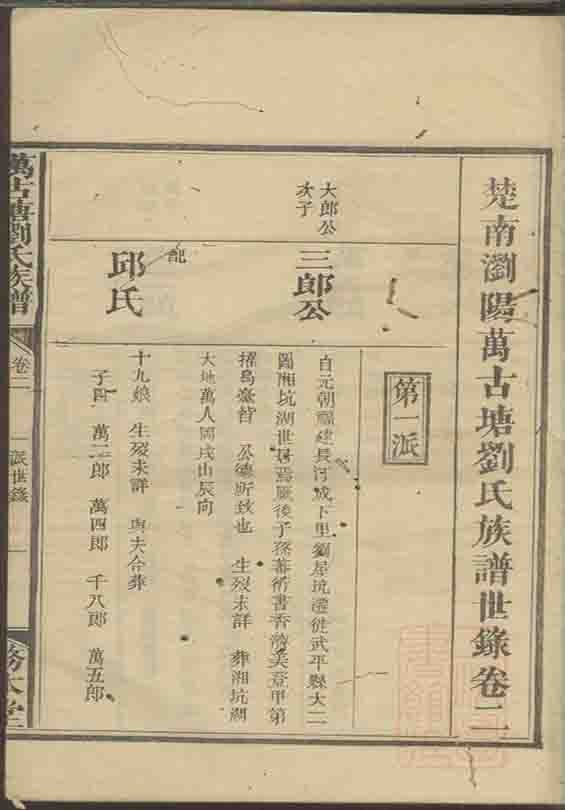 楚南瀏陽萬古塘劉氏族譜世錄卷二
第一派
大郎公
次子
三郎公
自元朝福建長河成下里劉屋坑遷徙武平縣大二
圖湘坑湖世居焉厥後子孫蕃衍書香濟美登甲第
擢烏臺皆 公德所致也 生歿未詳 葬湘坑湖
大地萬人岡戌山辰向
配
邱氏
十九娘 生歿未詳 與夫合葬
子四 萬二郎 萬四郎 千八郎 萬五郎
萬古塘劉氏族譜
卷二
一派世錄
一
務本堂